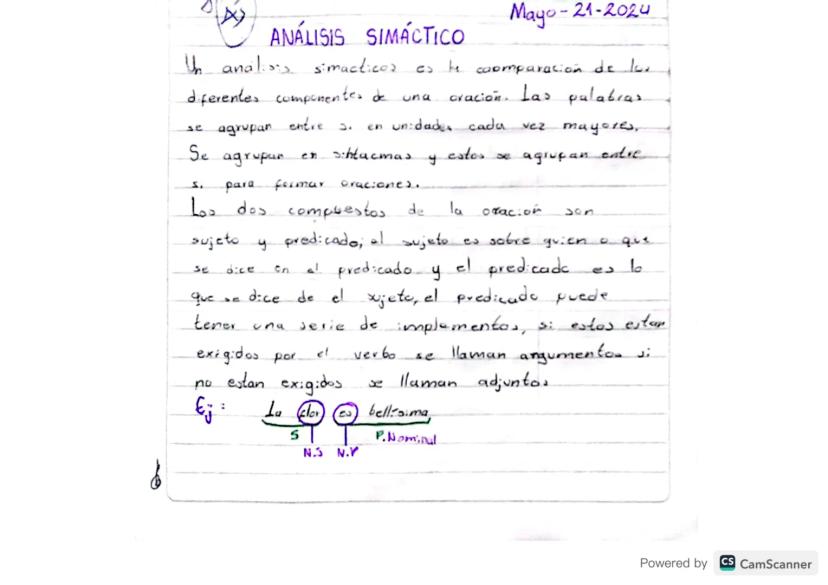 Mayo-21-2024
ANÁLISIS SIMÁCTICO
Un analisis simacticos es la coomparación de los
diferentes componentes de una oración. Las palabras
se agrupan entre si en unidades cada vez mayores.
Se agrupan en sihtacmas y estos se agrupan entre
si para formar oraciones.
Los dos compuestos de la oración son
sujeto y predicado, el sujeto es sobre quien o que
se dice en el predicado y el predicado es lo
que se dice de el sujeto, el predicado puede
tener una serie de implementos, si estos estan
exigidos por el verbo se llaman argumentos si
no estan exigidos se llaman adjuntos
Ej: La flor es bellisima
S P. Nominal
N.S N.P
Powered by CS CamScanner